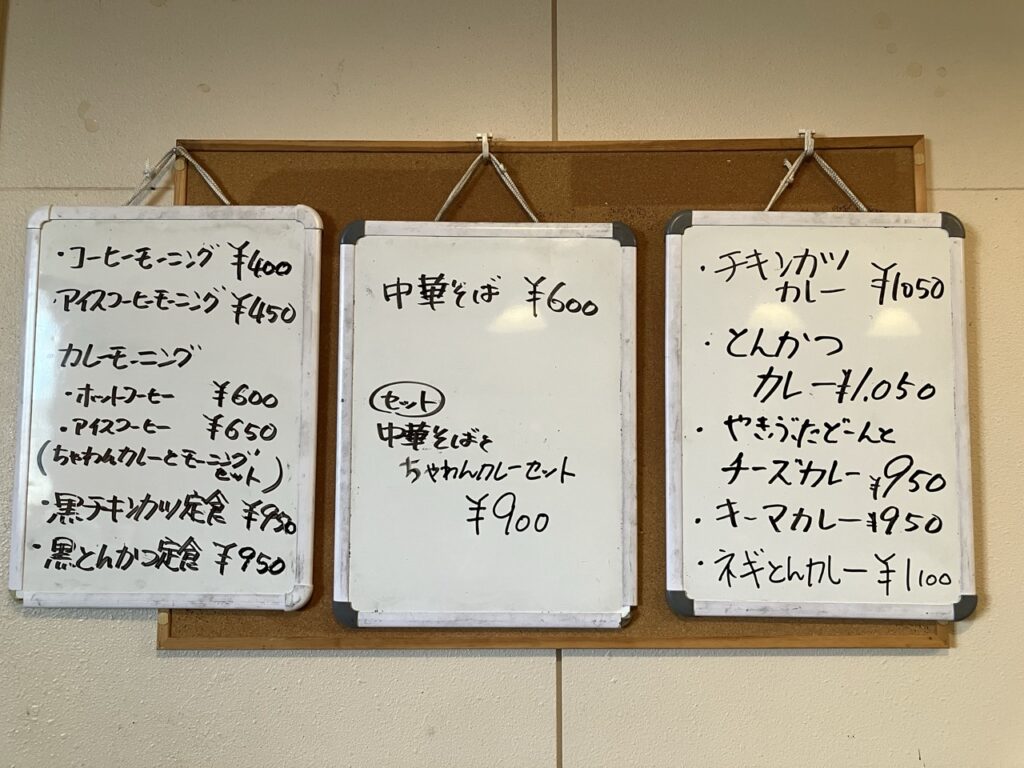 ・コーヒーモーニング ¥400
アイスコーヒーモーニング ¥450
カレーモーニング
・ホットコーヒー ¥600
・アイスコーヒー ¥650
(ちゃわんカレーとモーニング
セット)
・黒チキンカツ定食 ¥950
・黒とんかつ定食 ¥950
中華そば ¥600
セット
中華そばと
ちゃわんカレーセット
¥900
・チキンカツ
カレー ¥1050
・とんかつ
カレー ¥1.050
・やきぶたどーんと
チーズカレー ¥950
・キーマカレー ¥950
・ネギとんカレー ¥1100